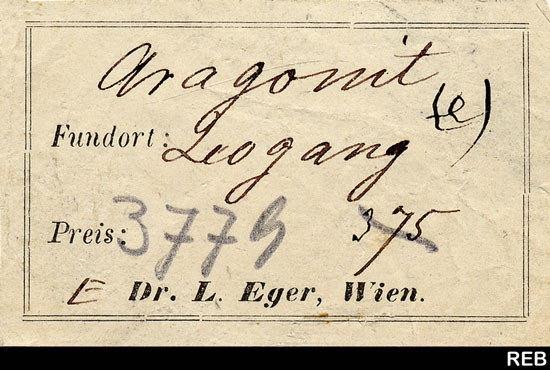 Aragonit
(e)
Fundort: Leogang
Preis: 3779 375
E Dr. L. Eger, Wien.
REB